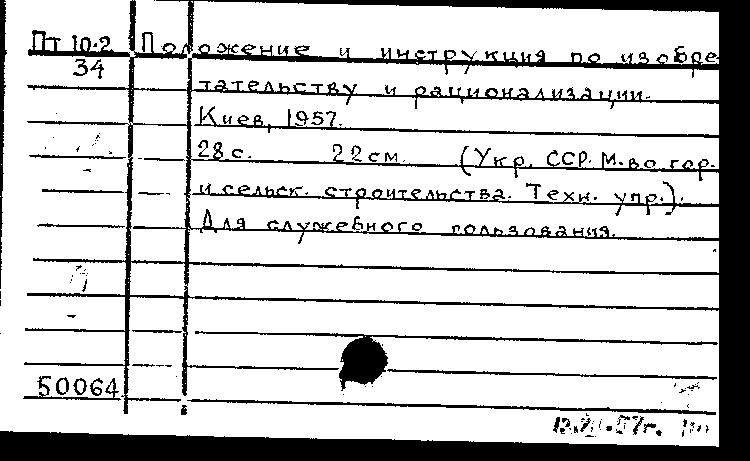 Пт 10.2 Положение и инструкция по изобре
34 тательству и рационализации.
Киев, 1957.
28 с. 22 см. (Укр. ССР. М-во гор.
и сельск. строительства. Техн. упр.).
Для служебного пользования.
50064